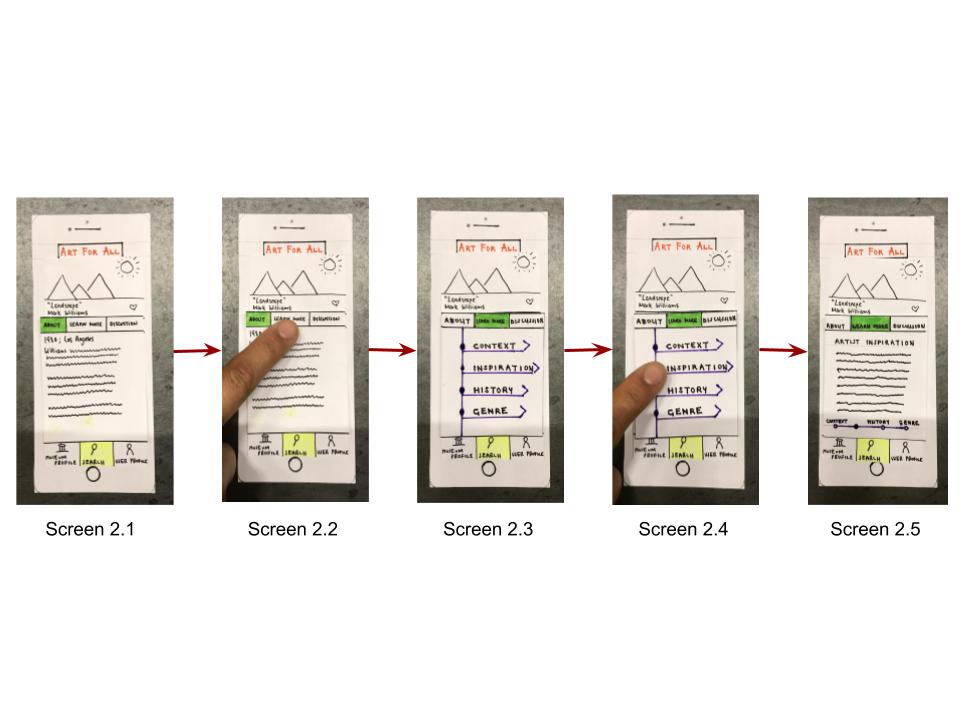 ART FOR ALL
"Landscape"
Mark Williams
ABOUT LEARN MORE DISCUSSION
1920; Los Angeles
Williams
MUSEUM PROFILE SEARCH USER PROFILE
Screen 2.1
ART FOR ALL
"Landscape"
Mark Williams
ABOUT LEARN MORE DISCUSSION
Williams
MUSEUM PROFILE SEARCH USER PROFILE
Screen 2.2
ART FOR ALL
"Landscape"
Mark Williams
ABOUT LEARN MORE DISCUSSION
CONTEXT
INSPIRATION
HISTORY
GENRE
MUSEUM PROFILE SEARCH USER PROFILE
Screen 2.3
ART FOR ALL
"Landscape"
Mark Williams
ABOUT LEARN MORE DISCUSSION
CONTEXT
INSPIRATION
HISTORY
GENRE
MUSEUM PROFILE SEARCH USER PROFILE
Screen 2.4
ART FOR ALL
"Landscape"
Mark Williams
ABOUT LEARN MORE DISCUSSION
ARTIST INSPIRATION
CONTEXT HISTORY GENRE
MUSEUM PROFILE SEARCH USER PROFILE
Screen 2.5